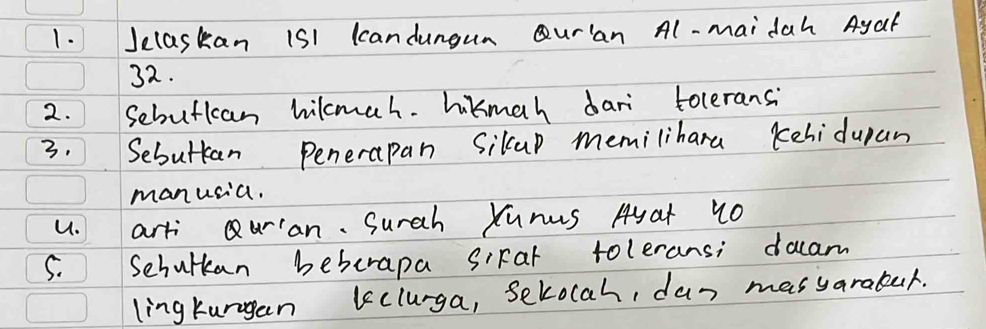 1. Jelaskan ISI kandungun Qur'an Al-maidah Ayat
32.
2. Sebutkan hikmah. hikmah dari toleransi
3. Sebutkan Penerapan Sikap memilihara kehidupan
manusia.
4. arti Qur'an. Surah Yunus Ayat 40
5. Sebutkan beberapa sifat toleransi dalam
lingkungan kelurga, sekolah, dan masyarakat.